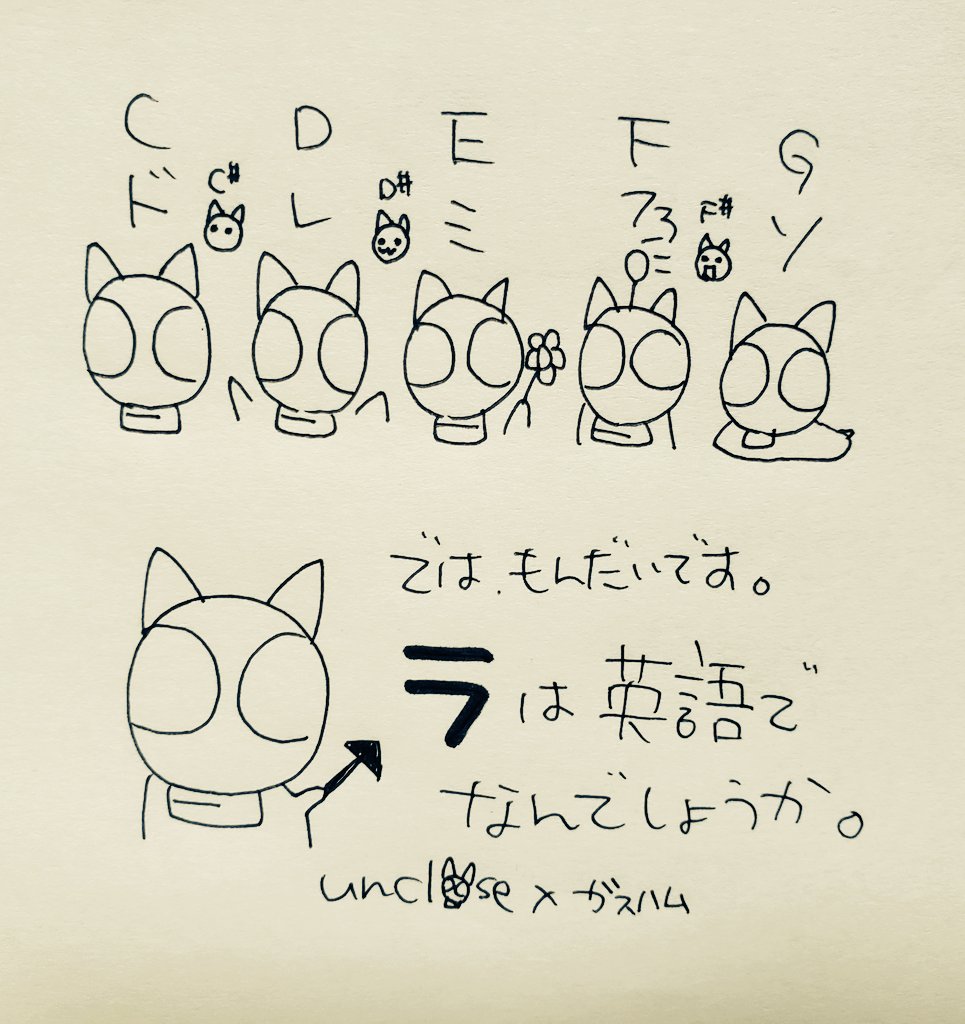 C D E F G
C# D# F#
ド レ ミ ファ ソ
では、もんだいです。
ラは英語で
なんでしょうか。
unclose×ガスハム